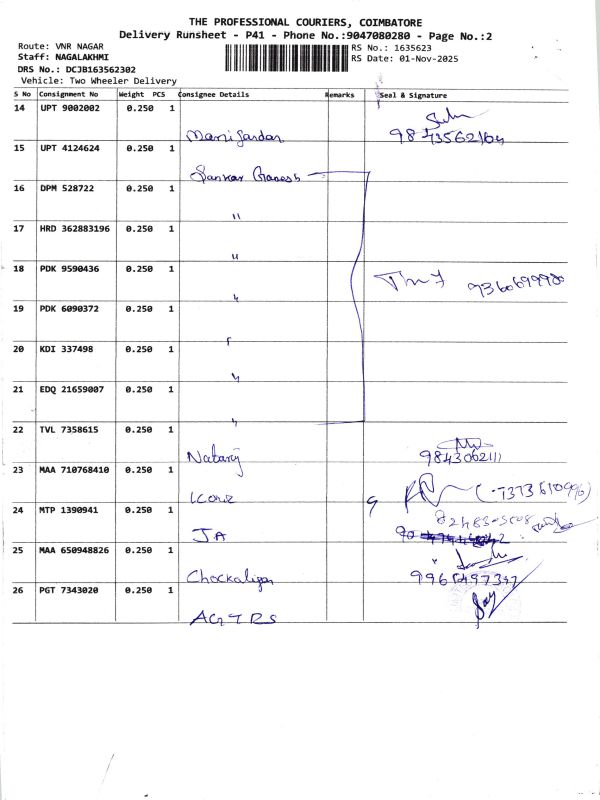 THE PROFESSIONAL COURIERS, COIMBATORE
Delivery Runsheet - P41 - Phone No.:9047080280 - Page No.:2
Route: VNR NAGAR RS No.: 1635623
Staff: NAGALAKHMI RS Date: 01-Nov-2025
DRS No.: DCJB163562302
Vehicle: Two Wheeler Delivery
S No Consignment No Weight PCS Consignee Details Remarks Seal & Signature
14 UPT 9002002 0.250 1
9843562164
15 UPT 4124624 0.250 1
Sankar Ganesh
16 DPM 528722 0.250 1
"
17 HRD 362883196 0.250 1
"
18 PDK 9590436 0.250 1
"
19 PDK 6090372 0.250 1
"
20 KDI 337498 0.250 1
"
21 EDQ 21659007 0.250 1
"
22 TVL 7358615 0.250 1
Nataraj 9843062111
23 MAA 710768410 0.250 1
(7373610996)
24 MTP 1390941 0.250 1
JA
25 MAA 650948826 0.250 1
Chockalingam
26 PGT 7343020 0.250 1